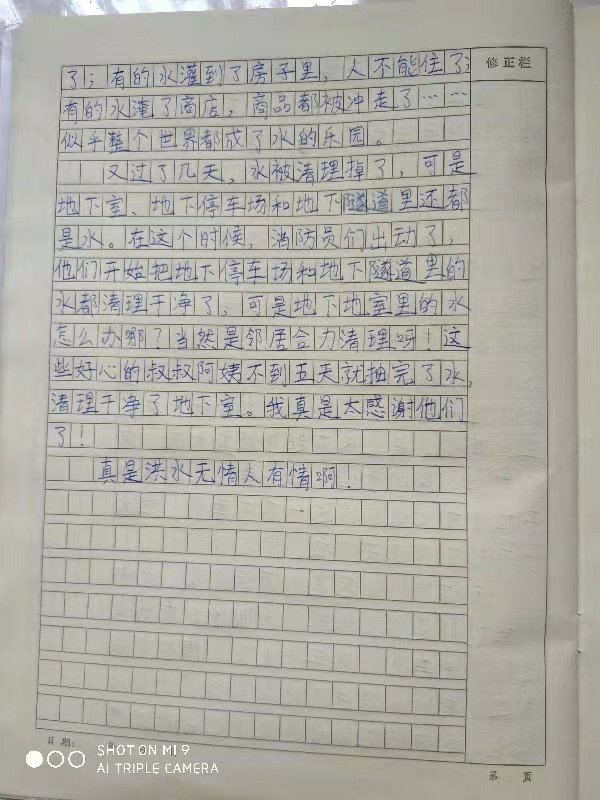 了；有的水灌到了房子里，人不能住了；
修正栏
有的水淹了商店，商品都被冲走了……
似乎整个世界都成了水的乐园。
又过了几天，水被清理掉了，可是
地下室、地下停车场和地下隧道里还都
是水。在这个时候，消防员们出动了，
他们开始把地下停车场和地下隧道里的
水都清理干净了，可是地下地室里的水
怎么办哪？当然是邻居合力清理呀！这
些好心的叔叔阿姨不到五天就抽完了水，
清理干净了地下室。我真是太感谢他们
了！
真是洪水无情人有情啊！
日期：
SHOT ON MI 9
AI TRIPLE CAMERA
第 页